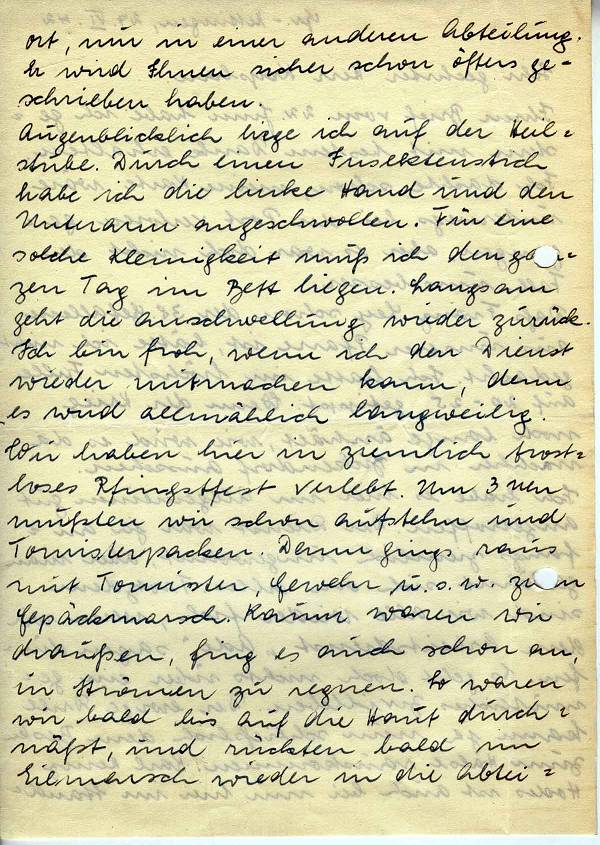 ort, nur in einer anderen Abteilung.
Er wird Ihnen sicher schon öfters ge=
schrieben haben.
Augenblicklich liege ich auf der Heil=
stube. Durch einen Insektenstich
habe ich die linke Hand und den
Unterarm angeschwollen. Für eine
solche Kleinigkeit muß ich den gan=
zen Tag im Bett liegen. Langsam
geht die Anschwellung wieder zurück.
Ich bin froh, wenn ich den Dienst
wieder mitmachen kann, denn
es wird allmählich langweilig.
Wir haben hier in ziemlich trost=
loses Pfingstfest verlebt. Um 3 Uhr
mußten wir schon aufstehn und
Tornisterpacken. Dann gings raus
mit Tornister, Gewehr u.s.w. zum
Gepäckmarsch. Kaum waren wir
draußen, fing es auch schon an,
in Strömen zu regnen. So waren
wir bald bis auf die Haut durch=
näßt, und rückten bald im
Eilmarsch wieder in die Abtei=